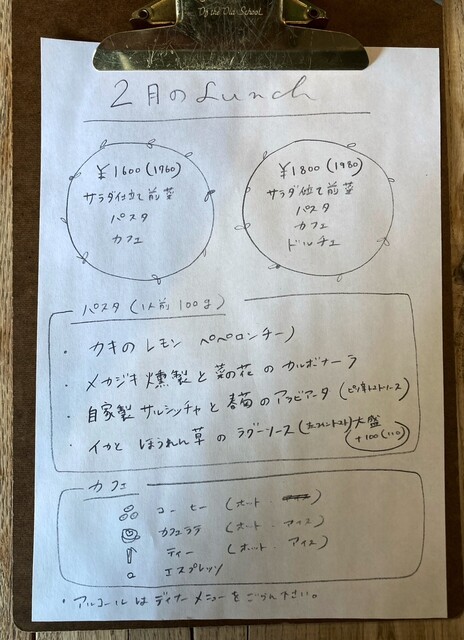 Of the Old School
2月のLunch
¥1600(1760)
サラダ仕立て前菜
パスタ
カフェ
¥1800(1980)
サラダ仕立て前菜
パスタ
カフェ
ドルチェ
パスタ(1人前100g)
・カキのレモン ペペロンチーノ
・メカジキ燻製と菜の花のカルボナーラ
・自家製サルシッチャと春菊のアラビアータ(ピリ辛トマトソース)
・イカとほうれん草のラグーソース
大盛
+100(110)
カフェ
コーヒー(ホット・
カフェラテ(ホット・アイス)
ティー(ホット・アイス)
エスプレッソ
・アルコールはディナーメニューをごらん下さい。